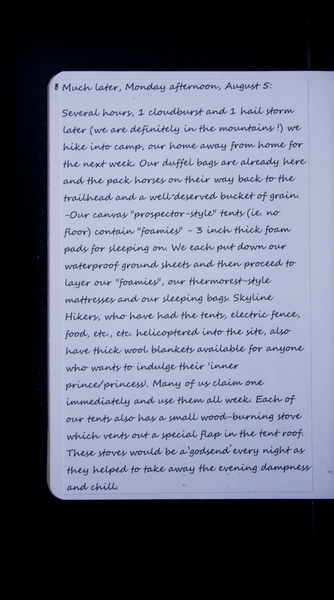 8 Much later, Monday afternoon, August 5:
Several hours, 1 cloudburst and 1 hail storm
later (we are definitely in the mountains !) we
hike into camp, our home away from home for
the next week. Our duffel bags are already here
and the pack horses on their way back to the
trailhead and a well-deserved bucket of grain.
-Our canvas "prospector-style" tents (ie. no
floor) contain "foamies" - 3 inch thick foam
pads for sleeping on. We each put down our
waterproof ground sheets and then proceed to
layer our "foamies", our thermorest-style
mattresses and our sleeping bags. Skyline
Hikers, who have had the tents, electric fence,
food, etc., etc. helicoptered into the site, also
have thick wool blankets available for anyone
who wants to indulge their 'inner
prince/princess'. Many of us claim one
immediately and use them all week. Each of
our tents also has a small wood-burning stove
which vents out a special flap in the tent roof.
These stoves would be a 'godsend' every night as
they helped to take away the evening dampness
and chill.